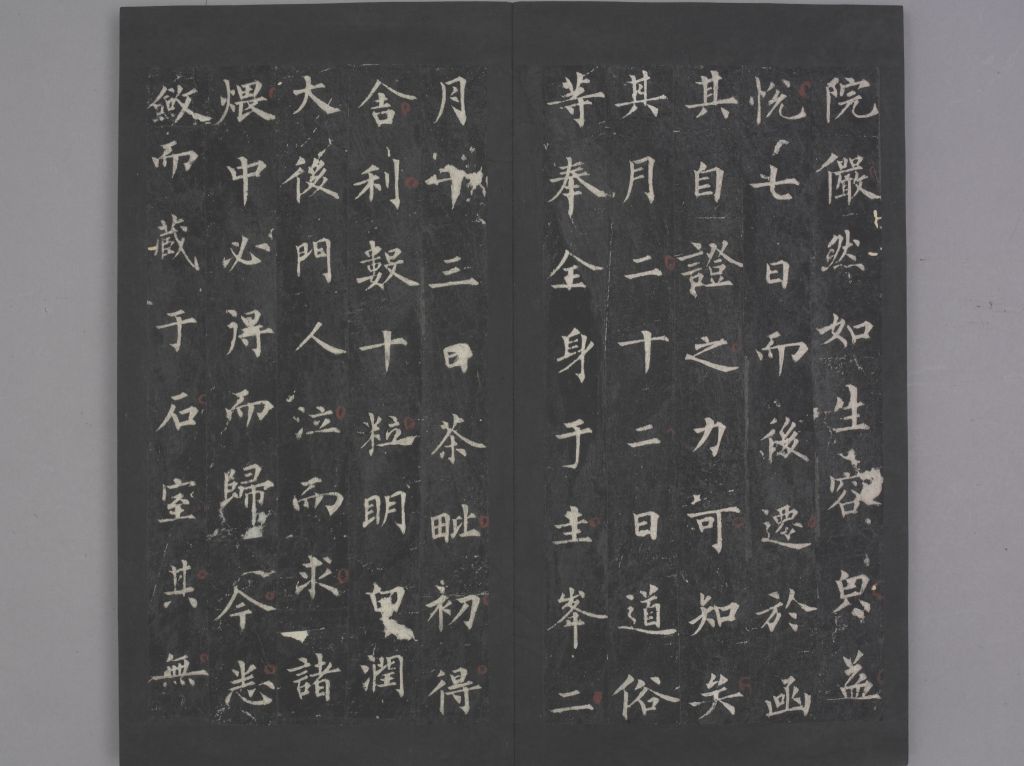 院儼然如生容皃益
悅七日而後遷於函
其自證之力可知矣
其月二十二日道俗
等奉全身于圭峯二
月十三日茶毗初得
舍利數十粒明白潤
大後門人泣而求諸
煨中必得而歸今悉
斂而藏于石室其無